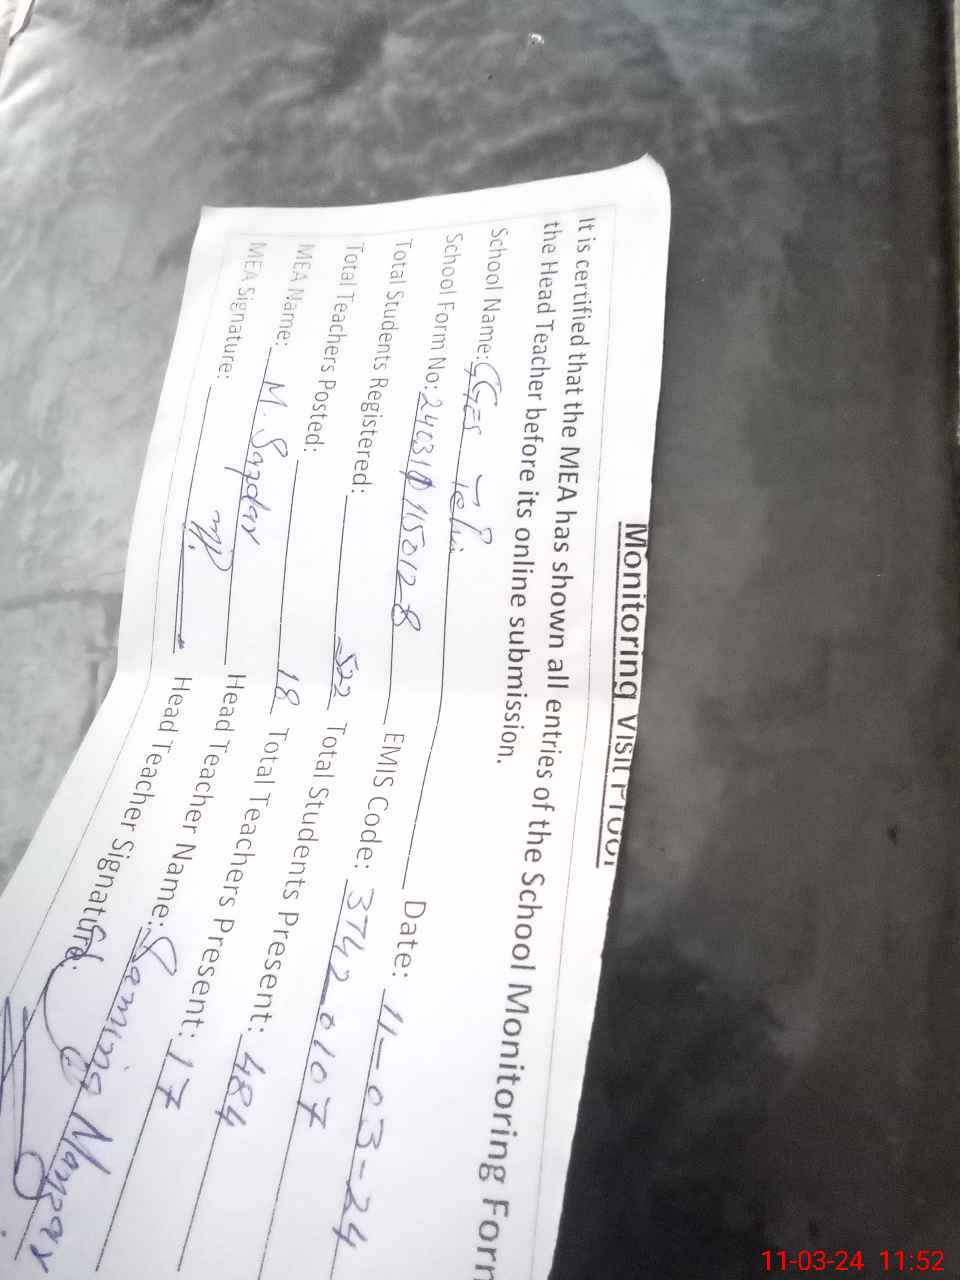 Monitoring Visit Proof
It is certified that the MEA has shown all entries of the School Monitoring Form
the Head Teacher before its online submission.
School Name: GGES Date: 11-03-24
School Form No: EMIS Code: 37420107
Total Students Registered: 522 Total Students Present: 484
Total Teachers Posted: 18 Total Teachers Present: 17
MEA Name: M. Safdar Head Teacher Name:
MEA Signature: Head Teacher Signature:
11-03-24 11:52